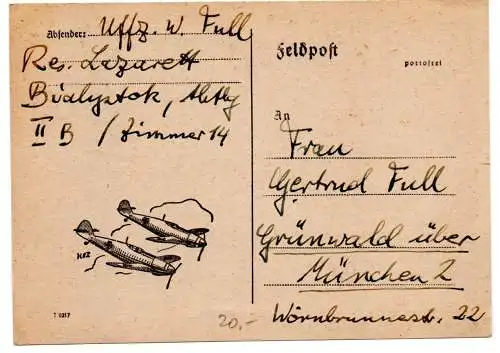 Absender: Uffz. W. Full
Res. Lazarett
Bialystok, Abtlg
II B / Zimmer 14
Feldpost
portofrei
An
Frau
Gertrud Full
Grünwald über
München 2
Wörnbrunnerstr. 22
T 0317
20,-